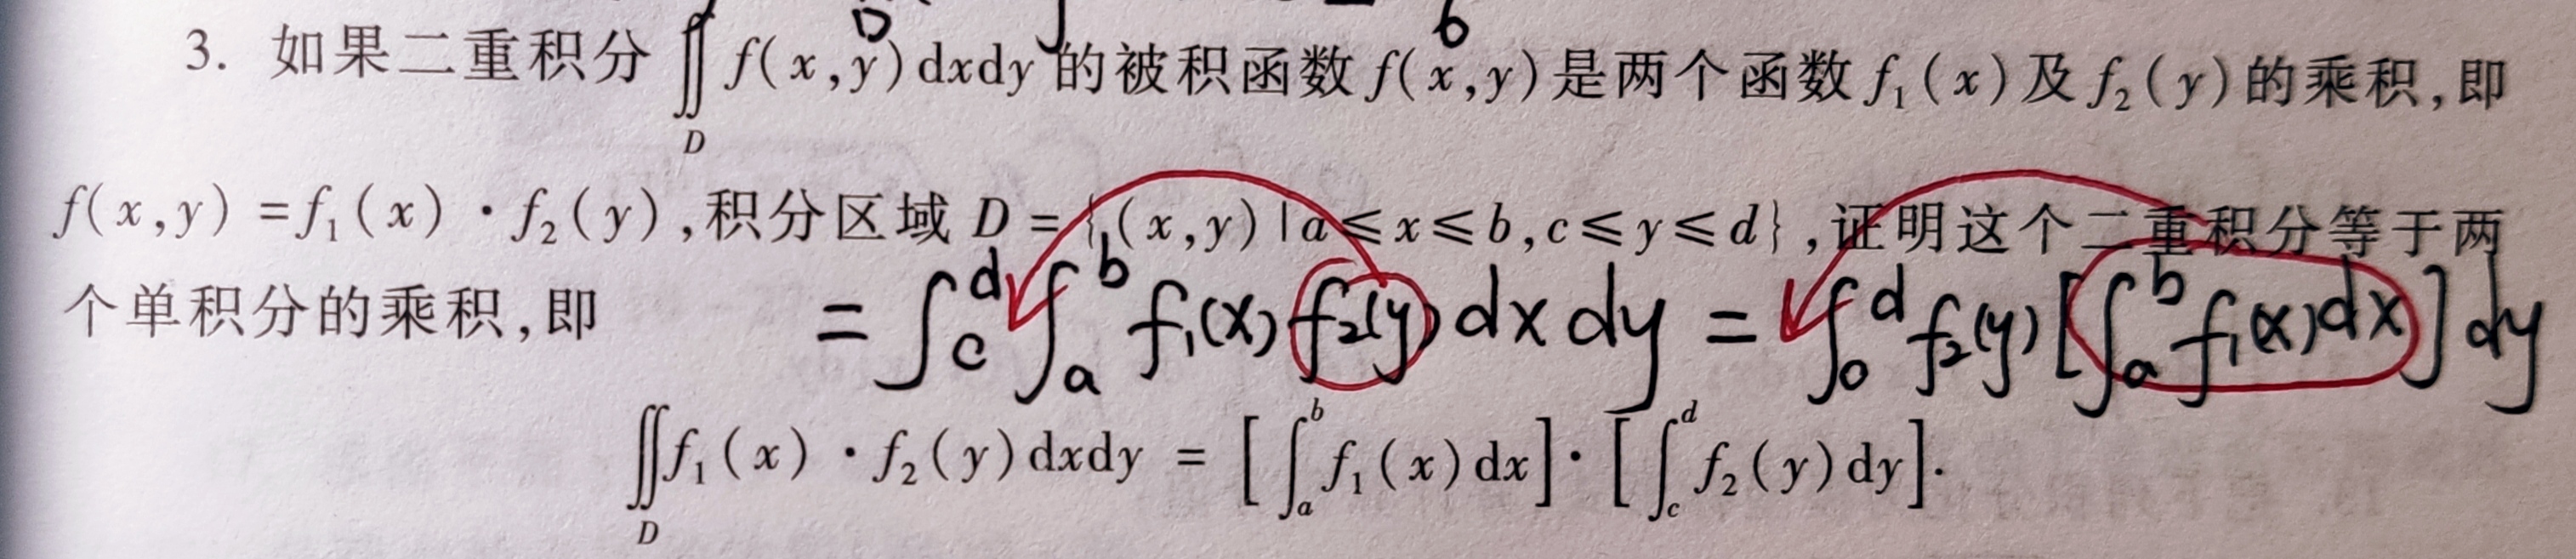 3. 如果二重积分∬_D f(x,y)dxdy的被积函数f(x,y)是两个函数f₁(x)及f₂(y)的乘积,即
f(x,y)=f₁(x)·f₂(y),积分区域D={(x,y)|a≤x≤b,c≤y≤d},证明这个二重积分等于两
个单积分的乘积,即
=∫_c^d ∫_a^b f₁(x)f₂(y)dxdy=∫_0^d f₂(y)[∫_a^b f₁(x)dx]dy
∬_D f₁(x)·f₂(y)dxdy=[∫_a^b f₁(x)dx]·[∫_c^d f₂(y)dy].